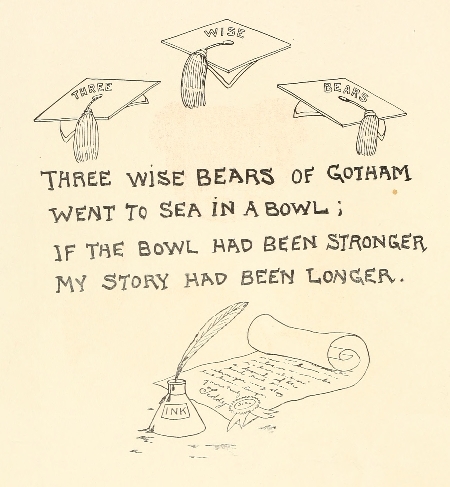 WISE
THREE
BEARS
THREE WISE BEARS OF GOTHAM
WENT TO SEA IN A BOWL;
IF THE BOWL HAD BEEN STRONGER
MY STORY HAD BEEN LONGER.
INK
Teddy